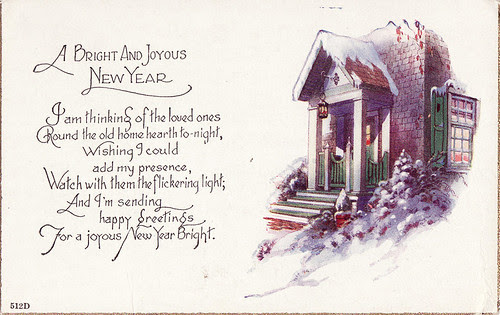 A Bright And Joyous
New Year
I am thinking of the loved ones
Round the old home hearth to-night,
Wishing I could
add my presence,
Watch with them the flickering light;
And I'm sending
happy greetings
For a joyous New Year Bright.
512D